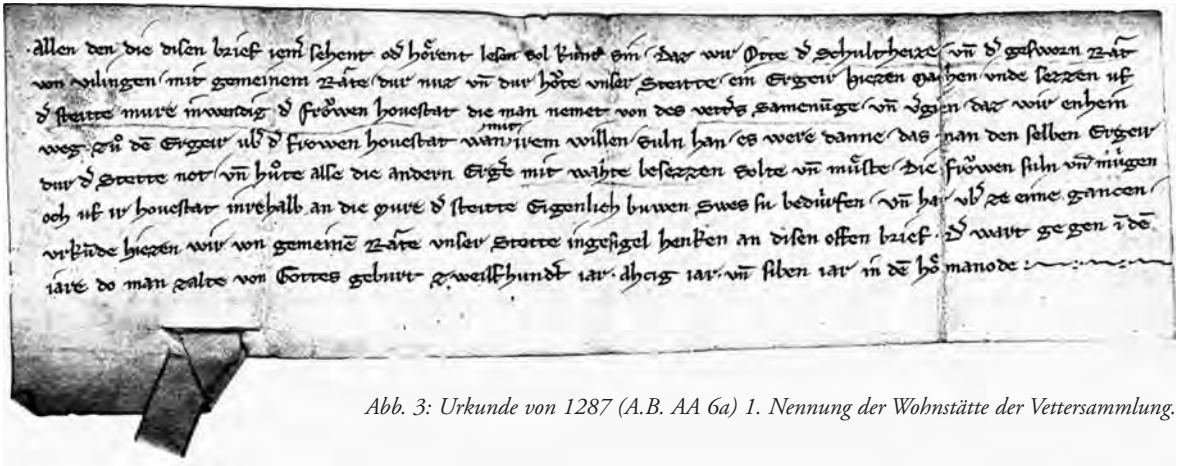 Allen den die disen brief iem̄ sehent od̓ hoͤrent lesen sol kunt sin / daz wir Otte d̓ Schultheize / vn̄ d̓ gesworn Rat
von vilingen / mit gemeinem Rate / dur nuz vn̄ dur hoͤte vnser Stette / ein Ergeir hiezen machen vnde sezzen vf
d̓ stette mure inwendig d̓ froͮwen hovestat die man nemet von des vett̓s Samenūge / vn̄ daz wir enhein
weg zuͦ dē Ergeir vb̓ d̓ frowen hovestat wan mit irem willen Suln han / es were danne / das man den selben Ergeir
dur d̓ Stette not / vn̄ huͦte alse die andern Erg̓e mit wahte besezzen Solte vn̄ muͤste / Die froͮwen suln vn̄ mùgen
och vf ir hovestat inrehalb an die mure d̓ stette Eigenlich buwen Swes su bedùrfen / vn̄ har vb̓ ze eime gancen
vrkūde hiezen wir von gemeinē Rate vnser Stette ingesigel henken an disen offen brief. D̓ wart gegen ī dē
iare do man zalte von Gottes geburt zweilfhundert iar. ahcig iar. vn̄ siben iar in dē manode
Abb. 3: Urkunde von 1287 (A.B. AA 6a) 1. Nennung der Wohnstätte der Vettersammlung.